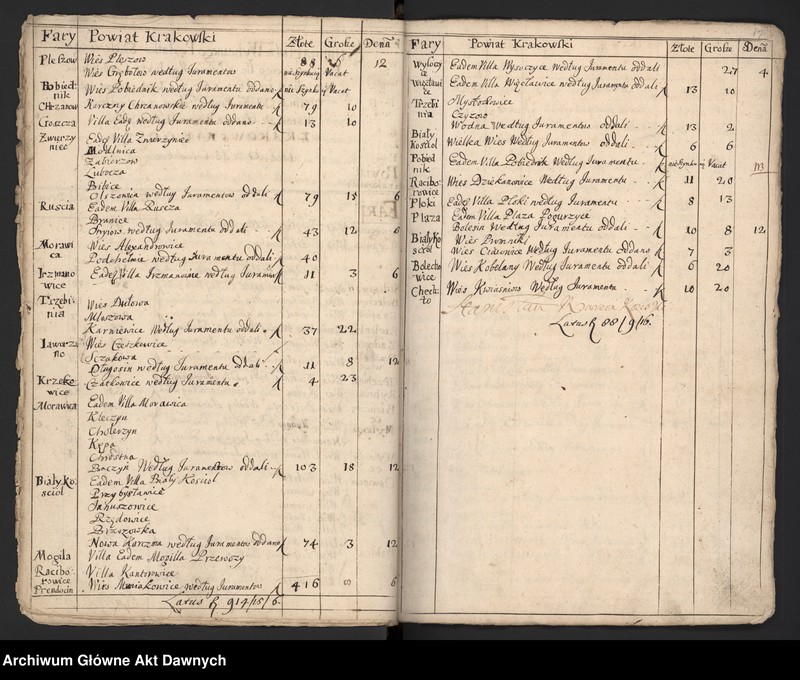 Fary Powiat Krakowski Złote Grosze Denā
Pleszow Wies Pleszow 88 6 12
Wies Grębałow według Juramentow nie Szynkuią Vacat
Pobiednik Wies Pobiednik według Juramentu oddano nie Szynk. Vacat
Chrzanow Karczmy Chrzanowskie według Juramentu 79 10
Goszcza Villa Eadē według Juramentu oddano 13 10
Zwierzyniec Eadē Villa Zwierzyniec
Modlnica
Zabierzow
Lubocza
Bibice
Olszanica według Juramentow oddali 79 15 6
Ruscia Eadem Villa Ruscza
Branice
według Juramentu oddali 43 12 6
Morawica Wies Alexandrowice
według Juramentu oddali 40
Irzmanowice Eadē Villa Irzmanowice według Juramentu 11 3 6
Trzebinia Wies Dulowa
Mloszowa
Karniowice według Juramentu oddali 37 22
Jaworzno Wies Cięszkowice
Sczakowa
Długosin według Juramentu oddali 11 8 12
Krzeszowice Czatkowice według Juramentu 4 23
Morawica Eadem Villa Morawica
Kleczyn
Cholerzyn
Kępa
Chrosna
Baczyn Według Juramentow oddali 103 18 12
Biały Kosciol Eadem Villa Biały Kosciol
Przybysławice
Januszowice
Rzędowice
Brzozowka
Nowa Karczma według Juramentow oddano 74 3 12
Mogiła Villa Eadem Mogilla Przewozy
Raciborowice Villa Kantorowice
Prendocin Wies Muniakowice według Juramentow 416 8 6
Latus R 914/15/6
Fary Powiat Krakowski Złote Grosze Denā
Wysocyce Eadem Villa Wysoczyce Według Juramentu oddali 27 4
Więcławice Eadem Villa Więcławice według Juramentu oddali 13 10
Trzebinia Mysłachowice
Czyzow
Wodna Według Juramentow oddali 13 2
Biały Kosciol Wielka Wies Według Juramentow oddali 6 6
Pobiednik Eadem Villa Pobiednik Według Juramentu nie Szynkuią Vacat
Raciborowice Wies Dziekanowice Według Juramentu 11 20
Płoki Eadē Villa Płoki według Juramentu 8 13
Płaza Eadem Villa Płaza Pogorzyce
Bolesin Według Juramentu oddali 10 8 12
Biały Kosciol Wies Prondnik
Wies Cianowice Według Juramentu oddano 7 3
Bolechowice Wies Kobelany Według Juramentu oddali 6 20
Chechło Wies Kwasniow Według Juramentu 10 20
Latus R 88/9/16.
Archiwum Główne Akt Dawnych